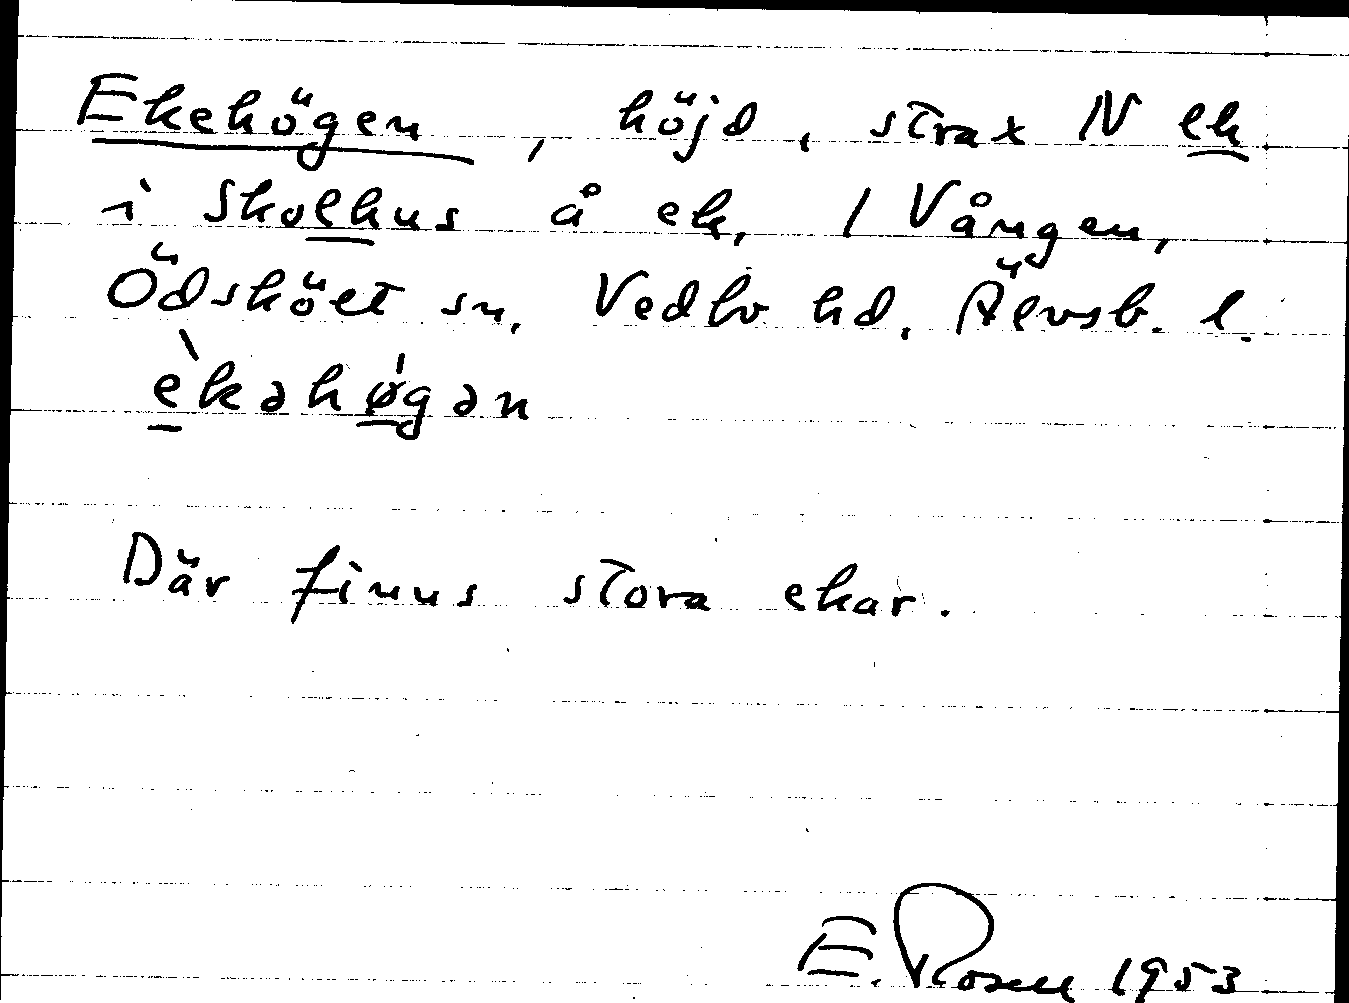 Ekehögen, höjd, strax N ek
i Skolhus å ek, 1 Vången,
Ödsköet sn, Vedbo hd, Älvsb. l.
èkəhø̍gən
Där finns stora ekar.
E. Rosell 1953